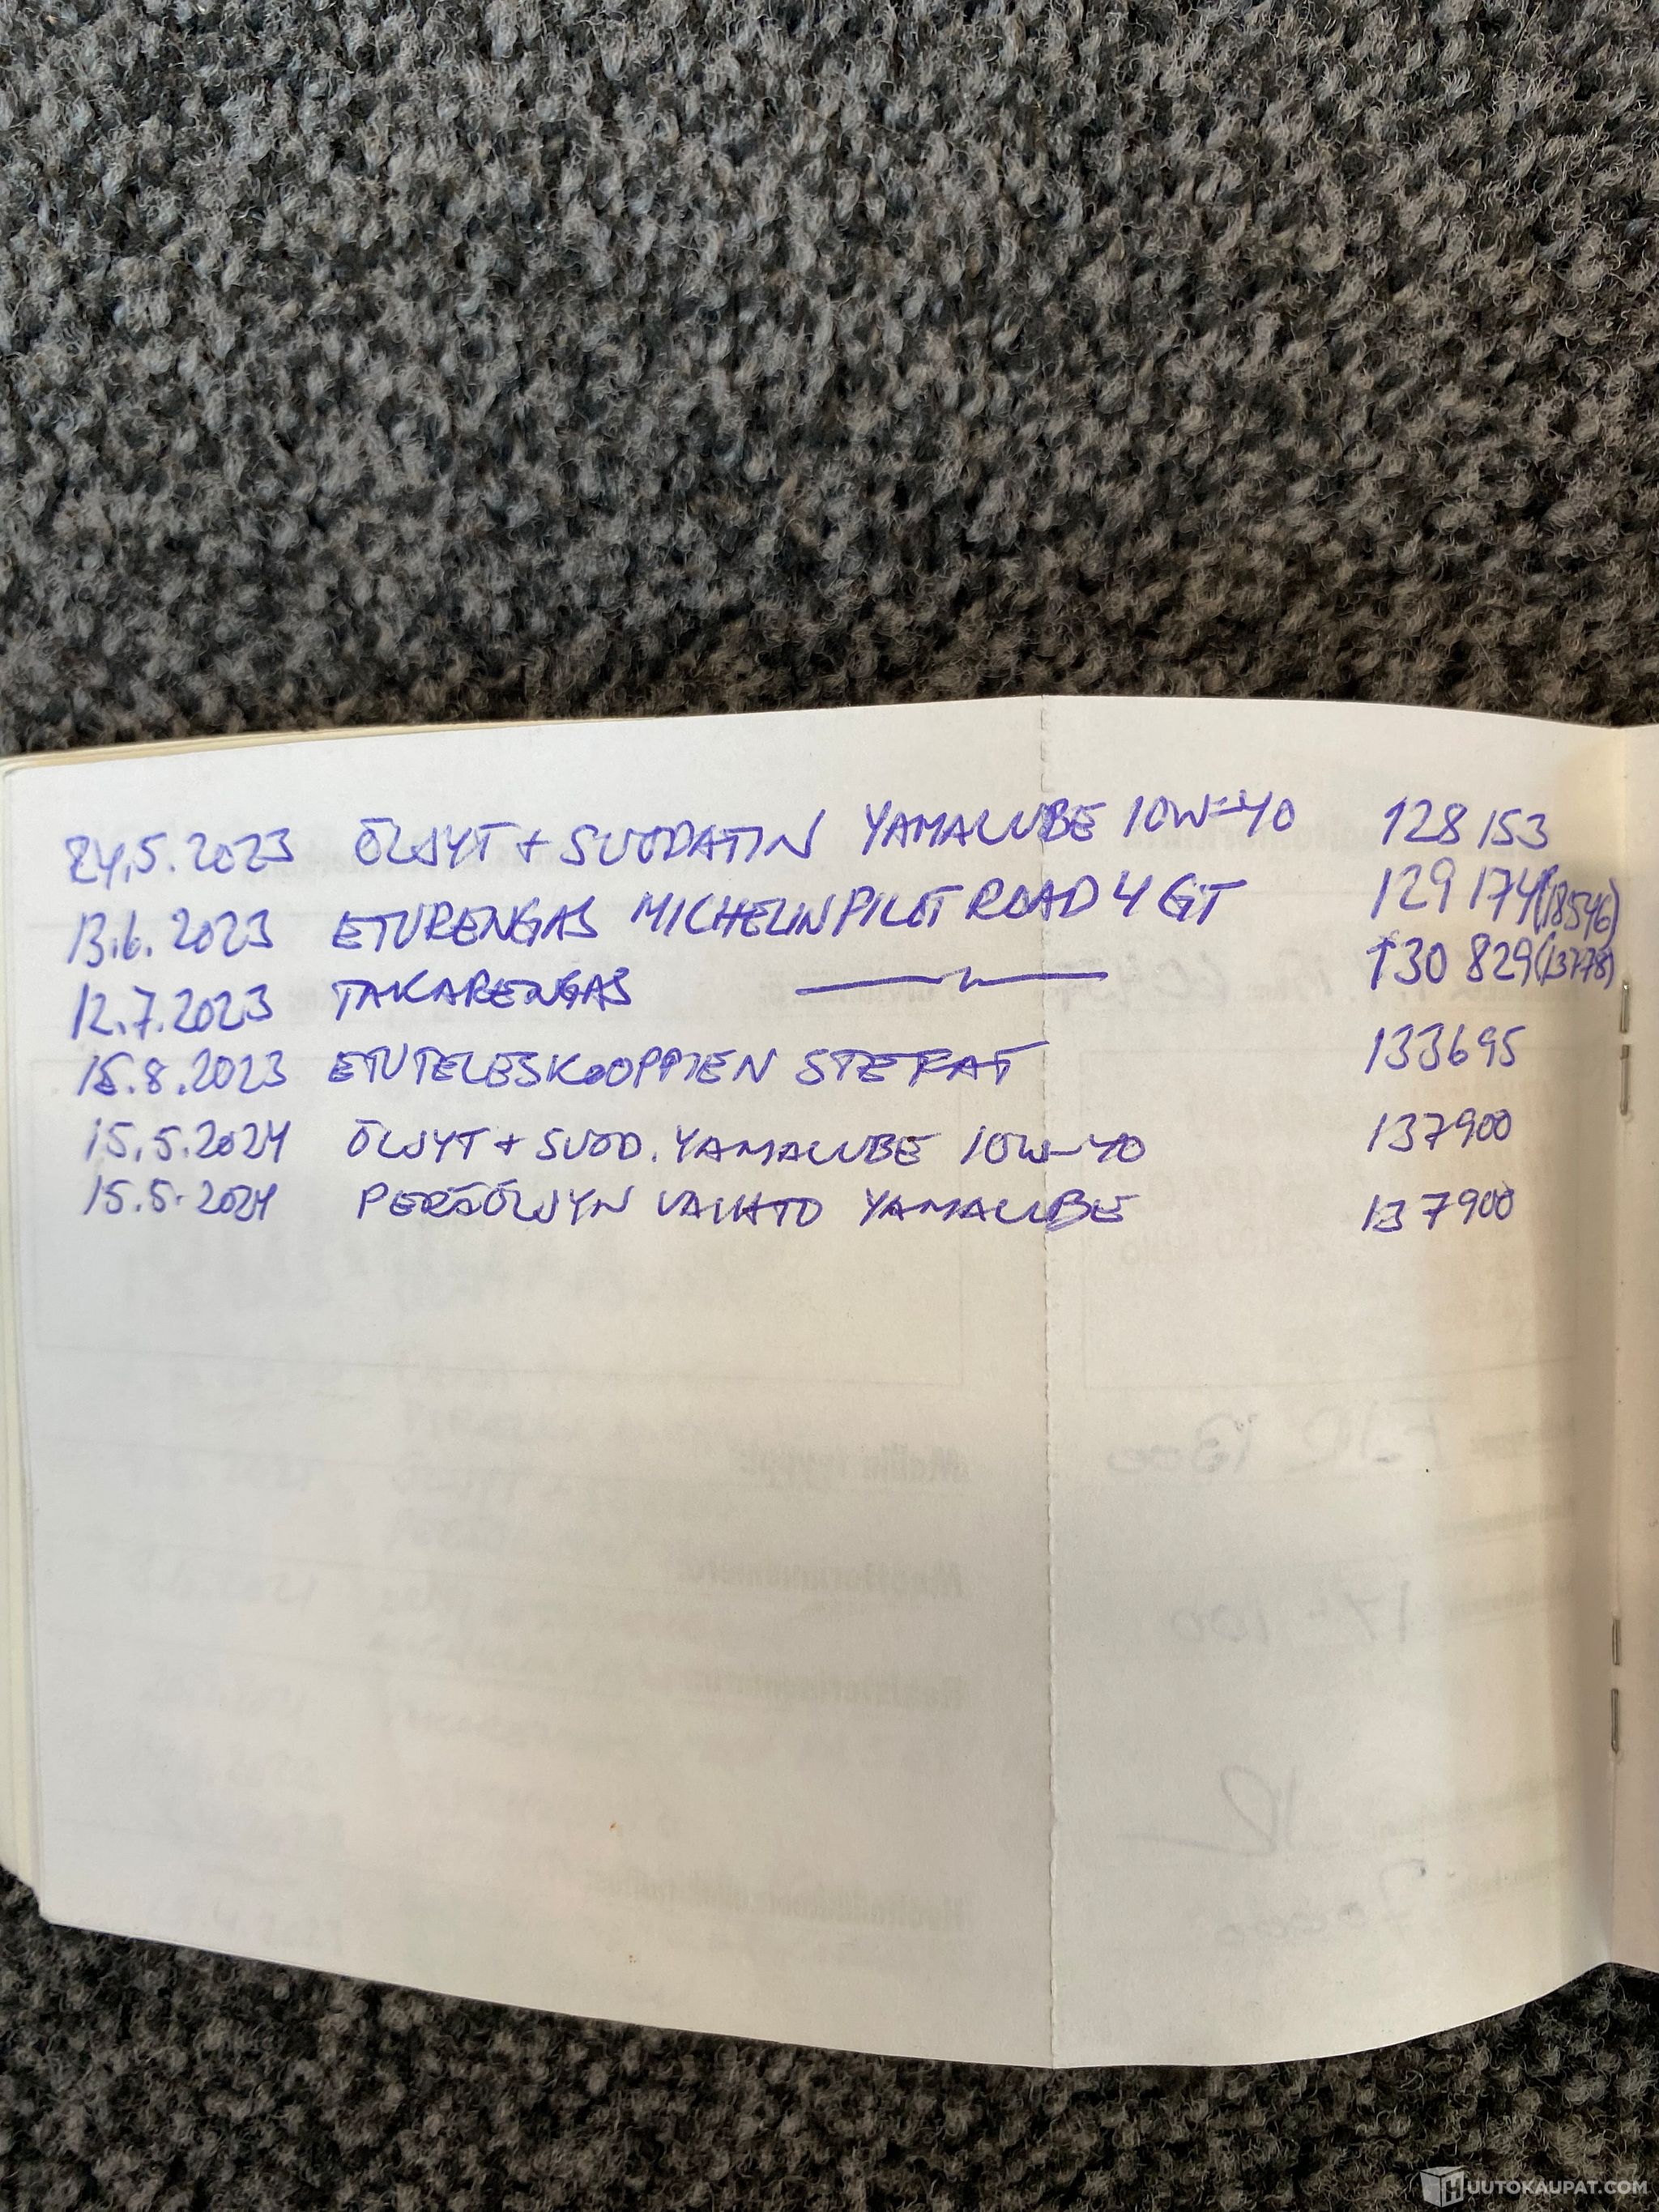 24.5.2023 ÖLJYT + SUODATIN YAMALUBE 10W-40 128 153
13.6.2023 ETURENGAS MICHELIN PILOT ROAD 4 GT 129 174 (18546)
12.7.2023 TAKARENGAS —〃— 130 829 (13778)
15.8.2023 ETUTELESKOOPPIEN STEFAT 133695
15.5.2024 ÖLJYT + SUOD. YAMALUBE 10W-40 137900
15.5.2024 PERÄÖLJYN VAIHTO YAMALUBE 137900
HUUTOKAUPAT.COM